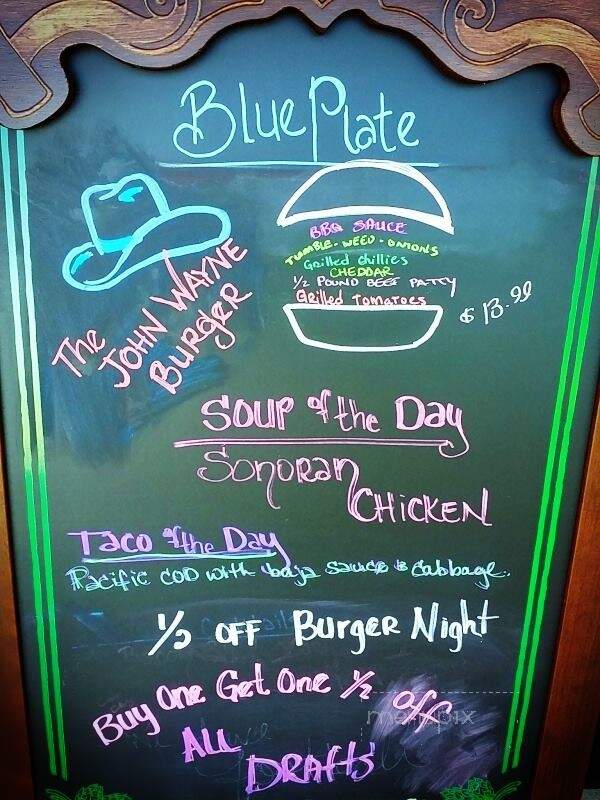 Blue Plate
The
JOHN WAYNE
BURGER
BBQ SAUCE
TUMBLE-WEED-ONIONS
Grilled chillies
CHEDDAR
1/2 POUND BEEF PATTY
Grilled Tomatoes
$ 13.99
Soup of the Day
Sonoran
CHICKEN
Taco of the Day
Pacific COD with baja sauce & Cabbage.
1/2 OFF Burger Night
Buy One Get One 1/2 off
ALL
DRAFTS
menupix